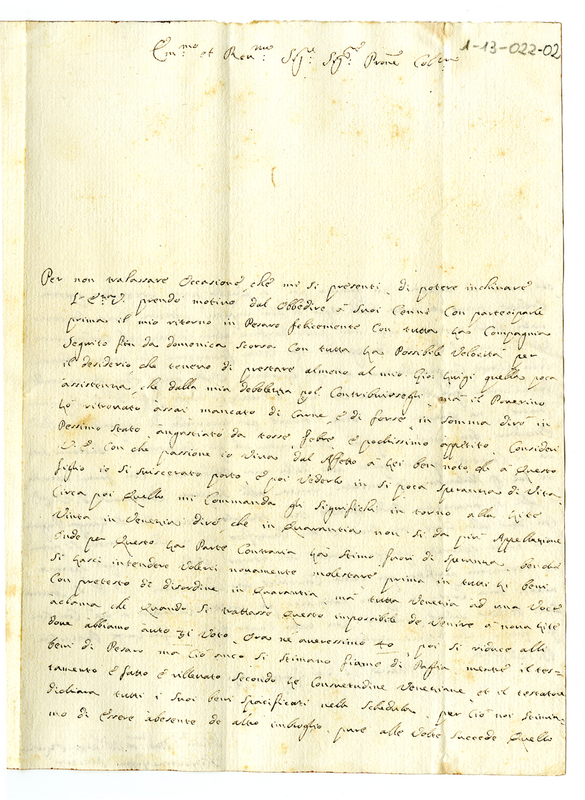 1-13-022-02
Em.mo et Rev.mo Sig.r Sig.r Prone Col.mo
Per non tralassare Occasione che mi si presenti di potere inchinare
prendo motivo dal Obbedire a Suoi Cenni Con parteciparle
prima il mio ritorno in Pesaro felicemente Con tutta la Compagnia
Seguito fin da domenica Scorsa Con tutta la Possibile Velocità per
il desiderio che tenevo di prestare almeno al mio Luigi quella poca
assistenza, che dalla mia debbolezza pol Contribuirsegli, mà il Poverino
hò ritrovato assai mancato di Carne e di forse, in somma dirò in
Pessimo Stato angustiato da tosse, febre, e pochissimo appetito. Consideri
V.E. Con che passione io Viva, dal Affetto à Lei ben noto, che à questo
figlio io Si Sviscerato porto, e poi Vederlo in Si poca Speranza di Vita.
Circa poi Quello mi Commanda gli Significhi in torno alla Lite
Vinta in Venezia dirò, che in Quarantia non Si dà più Appellazione
onde per Questo la Parte Contraria la Stimo fuori di Speranza, benche
Si lasci intendere Volerci novamente molestare prima in tutti li beni
Con pretesto di disordine in Quarantia, mà tutta Venezia ad una Voce
aclama che Quando Si trattasse Questo impossibile de Venire à nova Lite
dove abbiamo auto 31 Voto, Ora ne averessimo 40, poi Si riduce alli
beni di Pesaro ma Ciò anco Si Stimano fiame di Paglia mentre il tes-
tamento è fatto e rillevato Secondo le Consuetudine Veneziane, et il testatore
dichiara tutti i Suoi beni Specificati nella Schedula, per Ciò noi Stimia-
mo di Essere absente de altro imbroglio, pure alle Volte Succede Quello